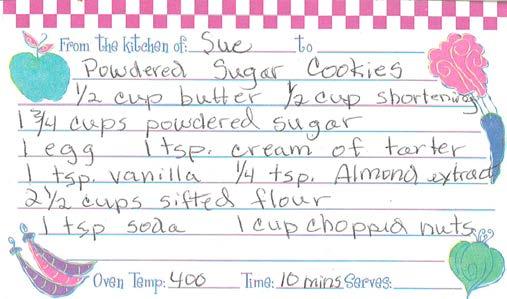 From the kitchen of: Sue to
Powdered Sugar Cookies
1/2 cup butter 1/2 cup shortening
1 3/4 cups powdered sugar
1 egg 1 tsp. cream of tarter
1 tsp. vanilla 1/4 tsp. Almond extract
2 1/2 cups sifted flour
1 tsp soda 1 cup chopped nuts
Oven Temp: 400 Time: 10 mins Serves: